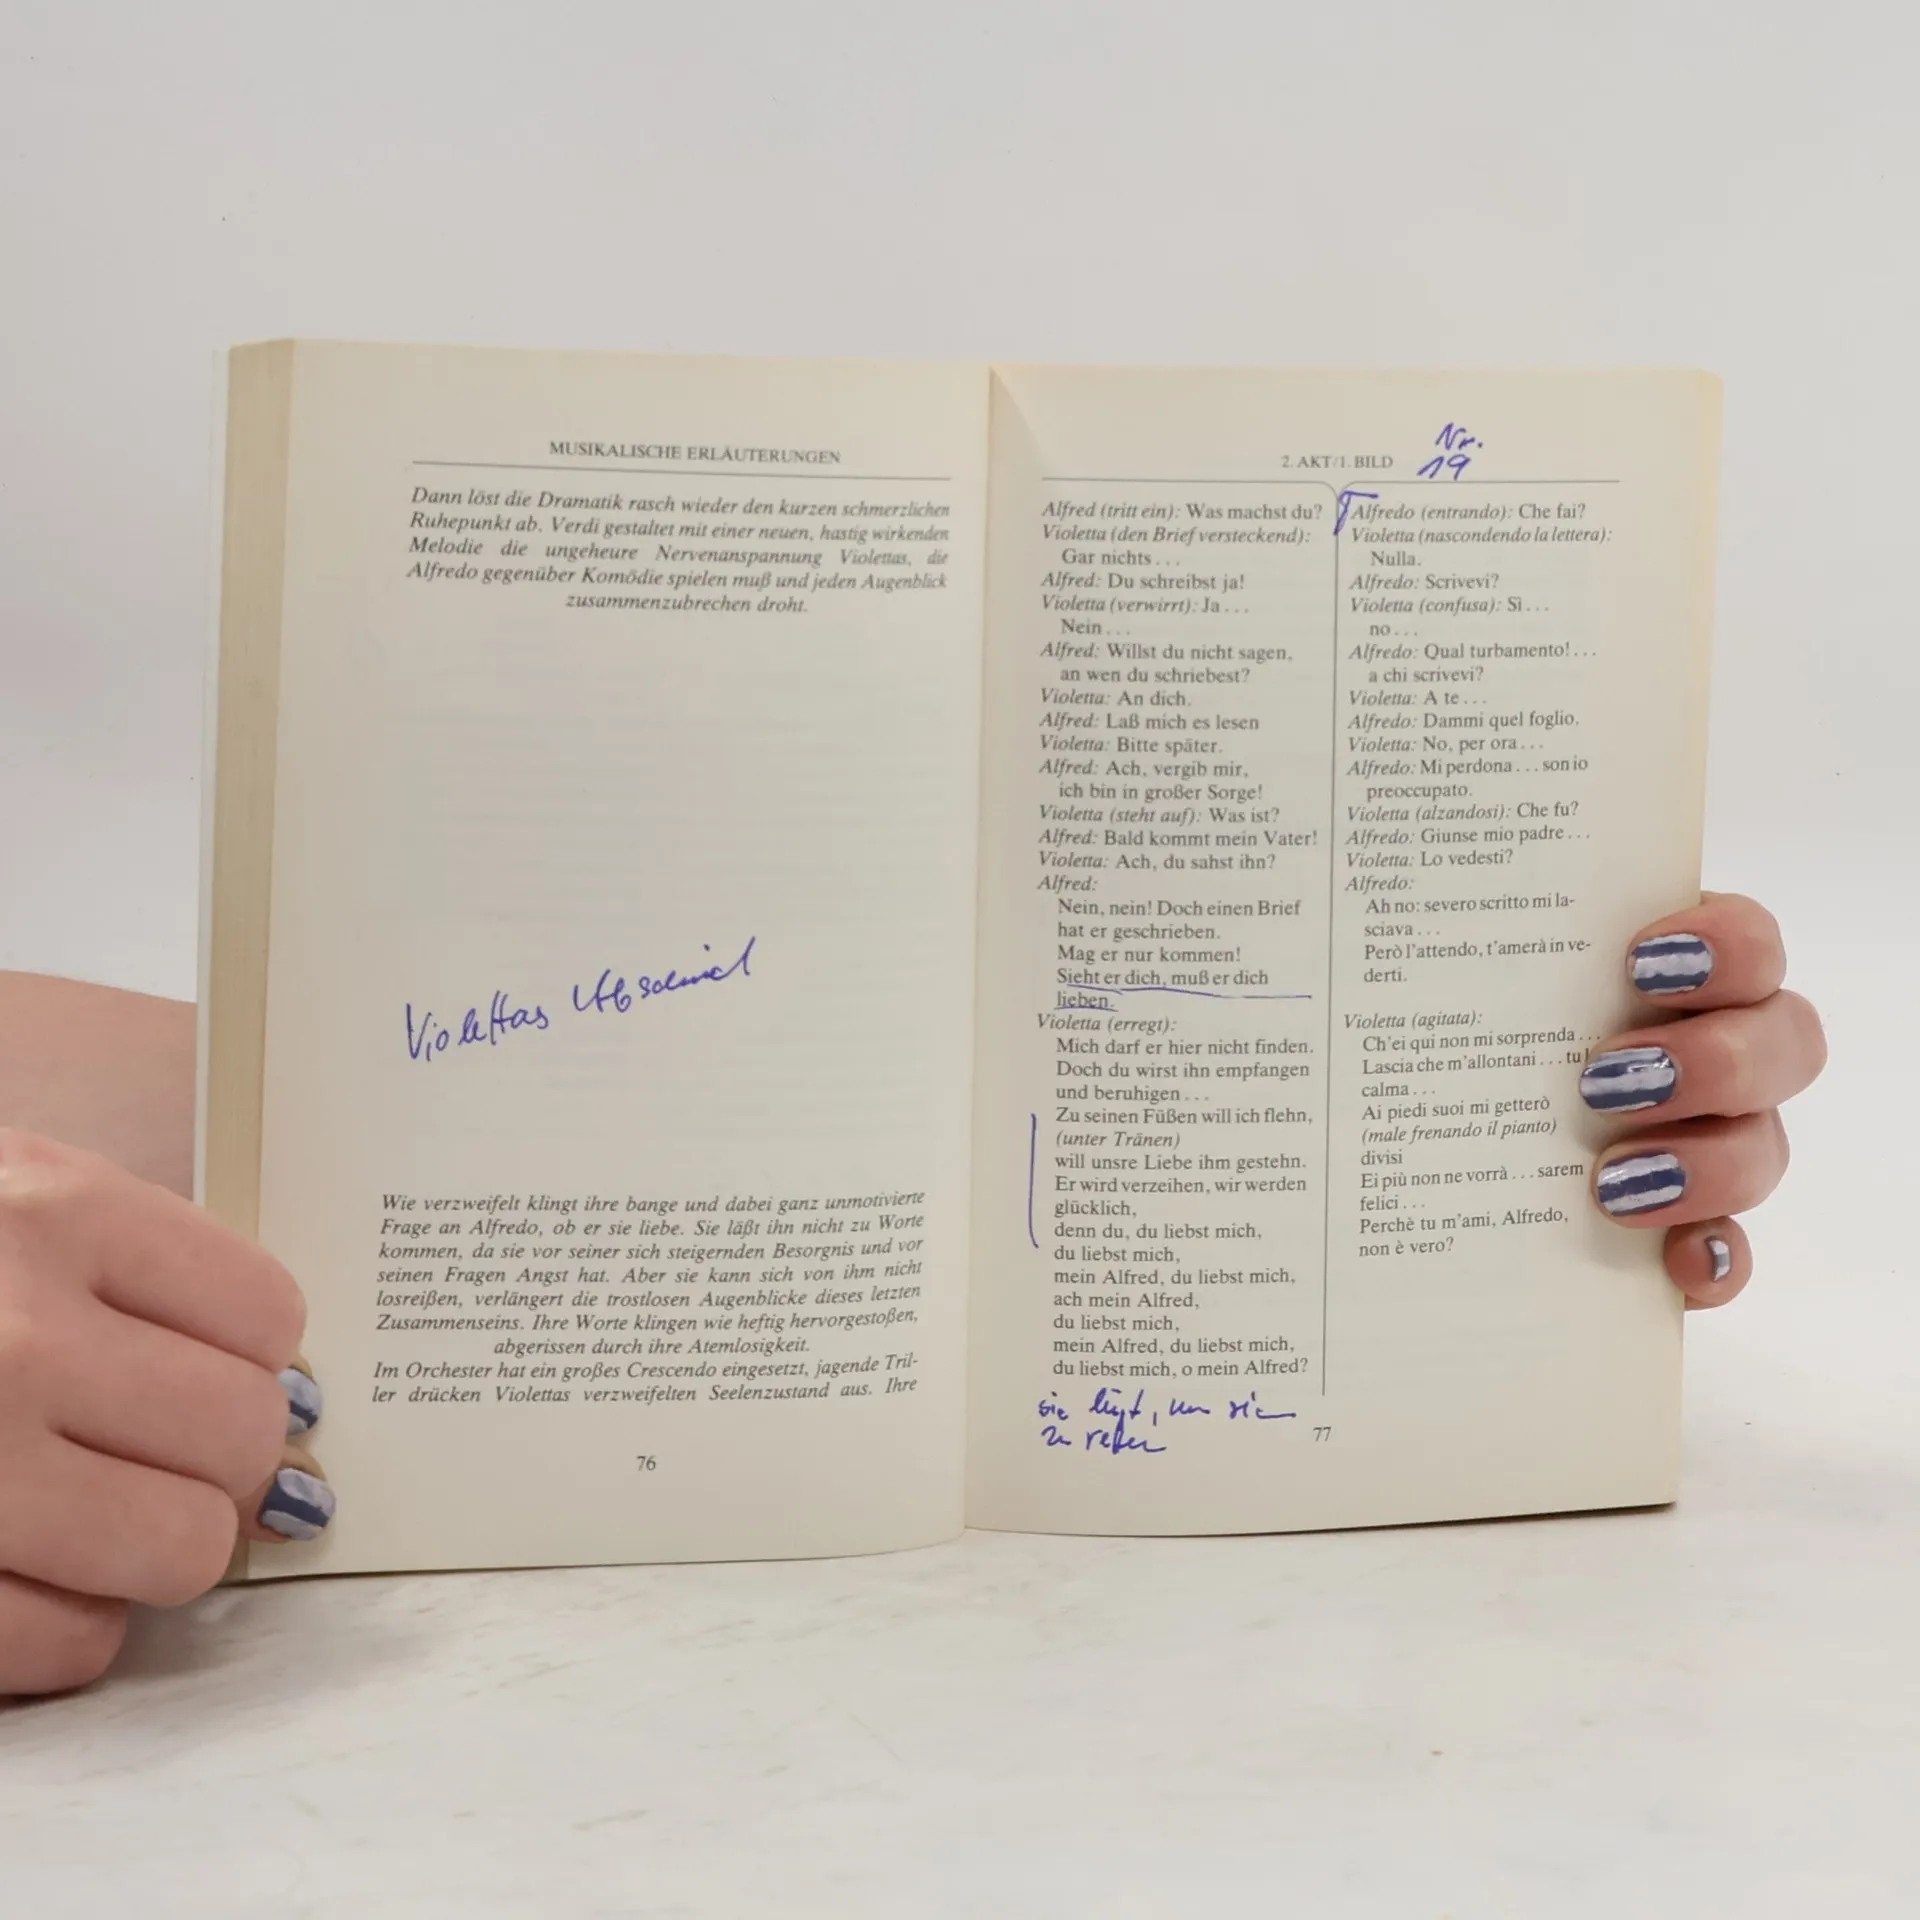 MUSIKALISCHE ERLÄUTERUNGEN
Dann löst die Dramatik rasch wieder den kurzen schmerzlichen
Ruhepunkt ab. Verdi gestaltet mit einer neuen, hastig wirkenden
Melodie die ungeheure Nervenanspannung Violettas, die
Alfredo gegenüber Komödie spielen muß und jeden Augenblick
zusammenzubrechen droht.
Violettas Abschied
Wie verzweifelt klingt ihre bange und dabei ganz unmotivierte
Frage an Alfredo, ob er sie liebe. Sie läßt ihn nicht zu Worte
kommen, da sie vor seiner sich steigernden Besorgnis und vor
seinen Fragen Angst hat. Aber sie kann sich von ihm nicht
losreißen, verlängert die trostlosen Augenblicke dieses letzten
Zusammenseins. Ihre Worte klingen wie heftig hervorgestoßen,
abgerissen durch ihre Atemlosigkeit.
Im Orchester hat ein großes Crescendo eingesetzt, jagende Tril-
ler drücken Violettas verzweifelten Seelenzustand aus. Ihre
76
2. AKT/1. BILD
Nr.
19
Alfred (tritt ein): Was machst du?
Violetta (den Brief versteckend):
Gar nichts . . .
Alfred: Du schreibst ja!
Violetta (verwirrt): Ja . . .
Nein . . .
Alfred: Willst du nicht sagen,
an wen du schriebest?
Violetta: An dich.
Alfred: Laß mich es lesen
Violetta: Bitte später.
Alfred: Ach, vergib mir,
ich bin in großer Sorge!
Violetta (steht auf): Was ist?
Alfred: Bald kommt mein Vater!
Violetta: Ach, du sahst ihn?
Alfred:
Nein, nein! Doch einen Brief
hat er geschrieben.
Mag er nur kommen!
Sieht er dich, muß er dich
lieben.
Violetta (erregt):
Mich darf er hier nicht finden.
Doch du wirst ihn empfangen
und beruhigen . . .
Zu seinen Füßen will ich flehn,
(unter Tränen)
will unsre Liebe ihm gestehn.
Er wird verzeihen, wir werden
glücklich,
denn du, du liebst mich,
du liebst mich,
mein Alfred, du liebst mich,
ach mein Alfred,
du liebst mich,
mein Alfred, du liebst mich,
du liebst mich, o mein Alfred?
sie lügt, um sich
zu retten
Alfredo (entrando): Che fai?
Violetta (nascondendo la lettera):
Nulla.
Alfredo: Scrivevi?
Violetta (confusa): Sì . . .
no . . .
Alfredo: Qual turbamento! . . .
a chi scrivevi?
Violetta: A te . . .
Alfredo: Dammi quel foglio.
Violetta: No, per ora . . .
Alfredo: Mi perdona . . . son io
preoccupato.
Violetta (alzandosi): Che fu?
Alfredo: Giunse mio padre . . .
Violetta: Lo vedesti?
Alfredo:
Ah no: severo scritto mi la-
sciava . . .
Però l'attendo, t'amerà in ve-
derti.
Violetta (agitata):
Ch'ei qui non mi sorprenda . . .
Lascia che m'allontani . . . tu
calma . . .
Ai piedi suoi mi getterò
(male frenando il pianto)
divisi
Ei più non ne vorrà . . . sarem
felici . . .
Perchè tu m'ami, Alfredo,
non è vero?
77